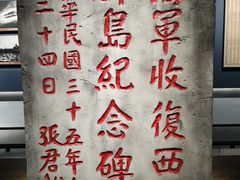 軍收復西
島紀念碑
華民國三十五年
二十四日 張君